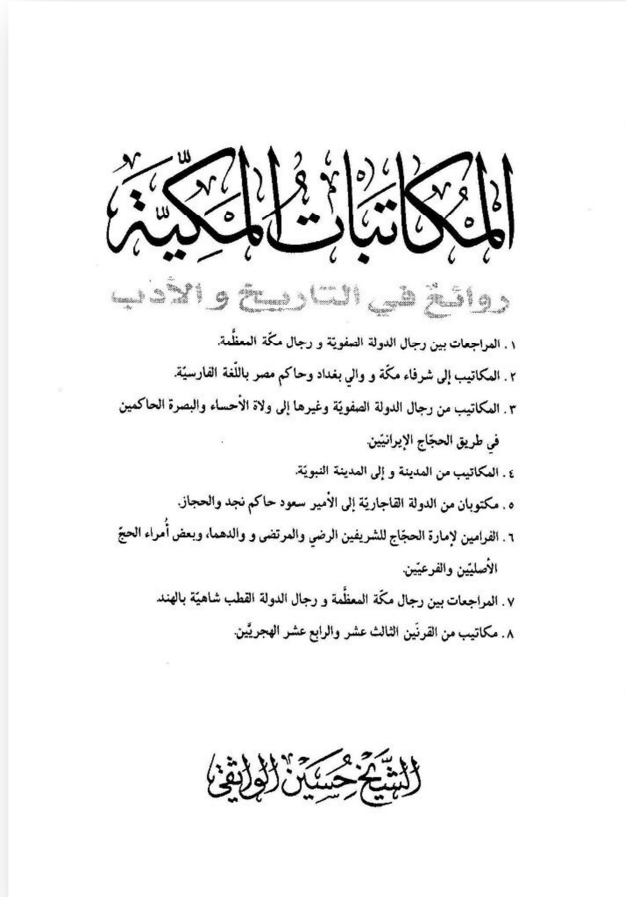 المكاتبات المكيّة
روائعُ في التاريخ و الأدب
١ . المراجعات بين رجال الدولة الصفويّة و رجال مكّة المعظَّمة.
٢ . المكاتيب إلى شرفاء مكّة و والي بغداد وحاكم مصر باللّغة الفارسيّة.
٣ . المكاتيب من رجال الدولة الصفويّة وغيرها إلى ولاة الأحساء والبصرة الحاكمين
في طريق الحجّاج الإيرانيّين.
٤ . المكاتيب من المدينة و إلى المدينة النبويّة.
٥ . مكتوبان من الدولة القاجاريّة إلى الأمير سعود حاكم نجد والحجاز.
٦ . الفرامين لإمارة الحجّاج للشريفين الرضي والمرتضى و والدهما، وبعض أُمراء الحجّ
الأصليّين والفرعيّين.
٧ . المراجعات بين رجال مكّة المعظَّمة و رجال الدولة القطب شاهيّة بالهند.
٨ . مكاتيب من القرنَين الثالث عشر والرابع عشر الهجريَّين.
الشَّيخ حُسَين الواثِقي